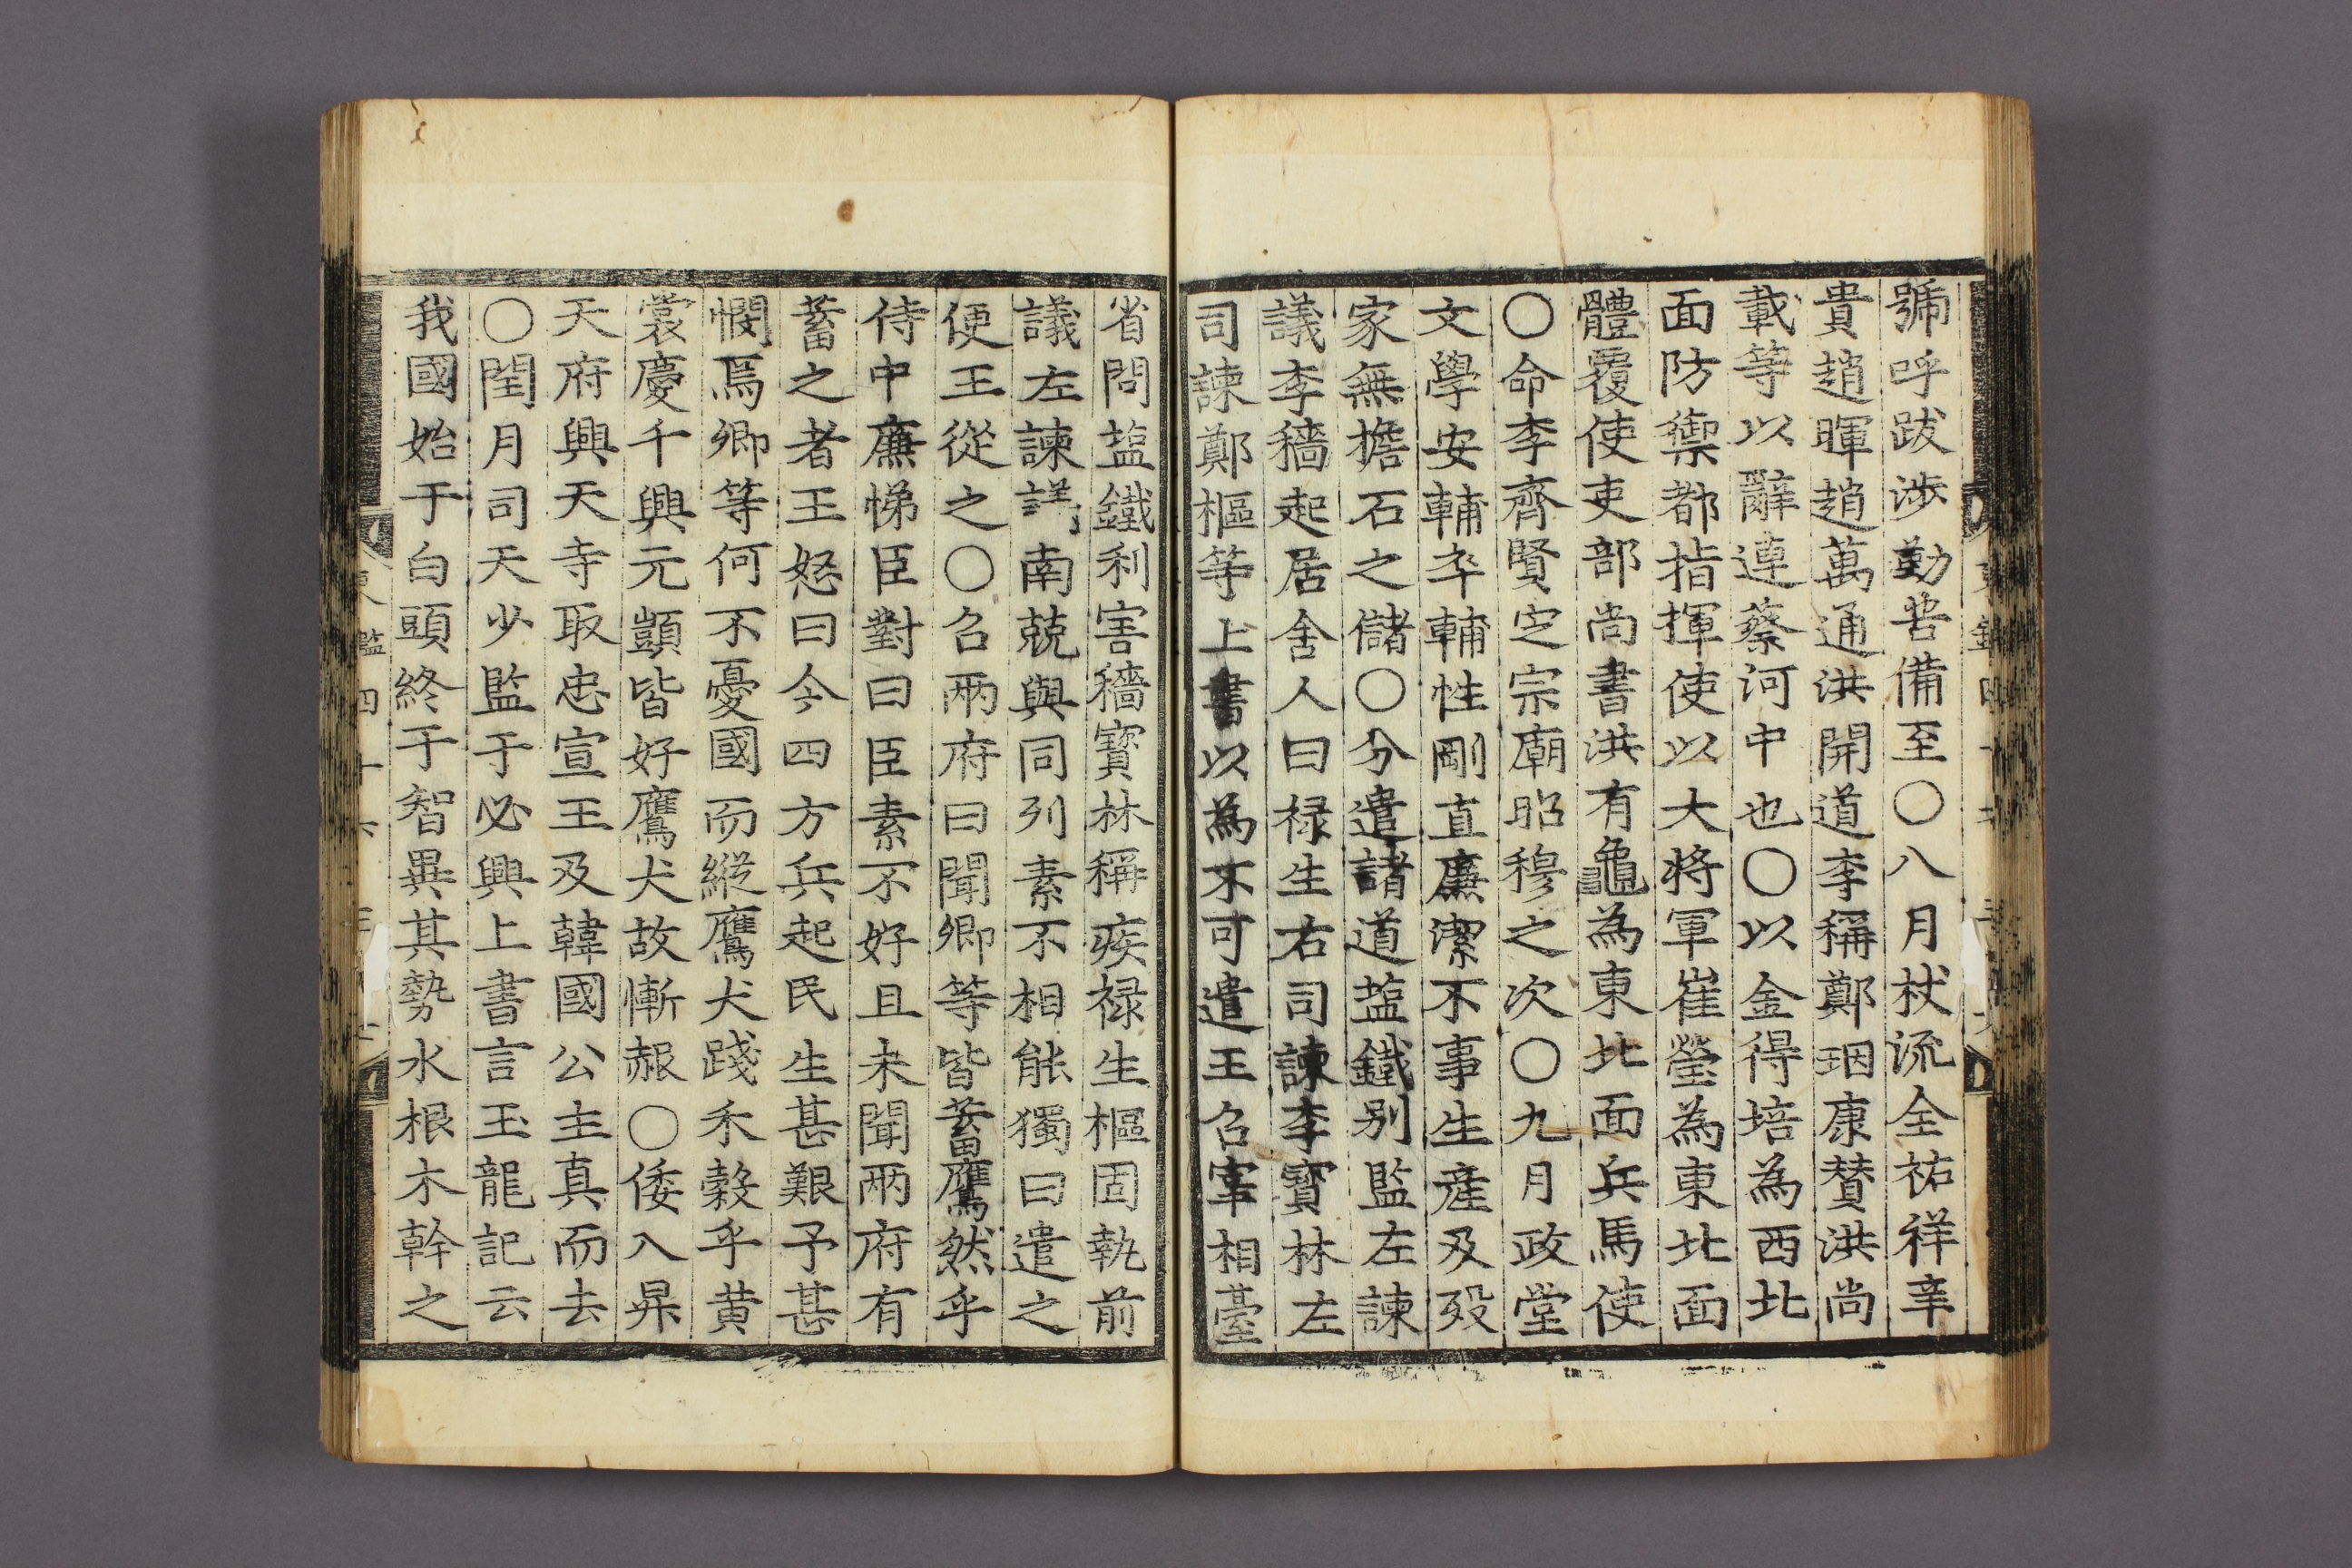 號呼跋涉勤苦備至〇八月杖流全祐祥辛
貴趙暉趙萬通洪開道李稱鄭珚康賛洪尚
載等以辭連蔡河中也〇以金得培為西北
面防禦都指揮使以大將軍崔瑩為東北面
體覆使吏部尚書洪有龜為東北面兵馬使
〇命李齊賢定宗廟昭穆之次〇九月政堂
文學安輔卒輔性剛直廉潔不事生產及歿
家無擔石之儲〇分遣諸道塩鐵别監左諫
議李穡起居舍人曰禄生右司諫李寶林左
司諫鄭樞等上書以為不可遣王召宰相臺
省問塩鐵利害穡寶林稱疾禄生樞固執前
議左諫議南兢與同列素不相能獨曰遣之
便王從之〇召兩府曰聞卿等皆蓄鷹然乎
侍中廉悌臣對曰臣素不好且未聞兩府有
蓄之者王怒曰今四方兵起民生甚艱予甚
憫焉卿等何不憂國而縱鷹犬踐禾穀乎黄
裳慶千興元顗皆好鷹犬故慚赧〇倭入昇
天府興天寺取忠宣王及韓國公主真而去
〇閏月司天少監于必興上書言玉龍記云
我國始于白頭終于智異其勢水根木幹之